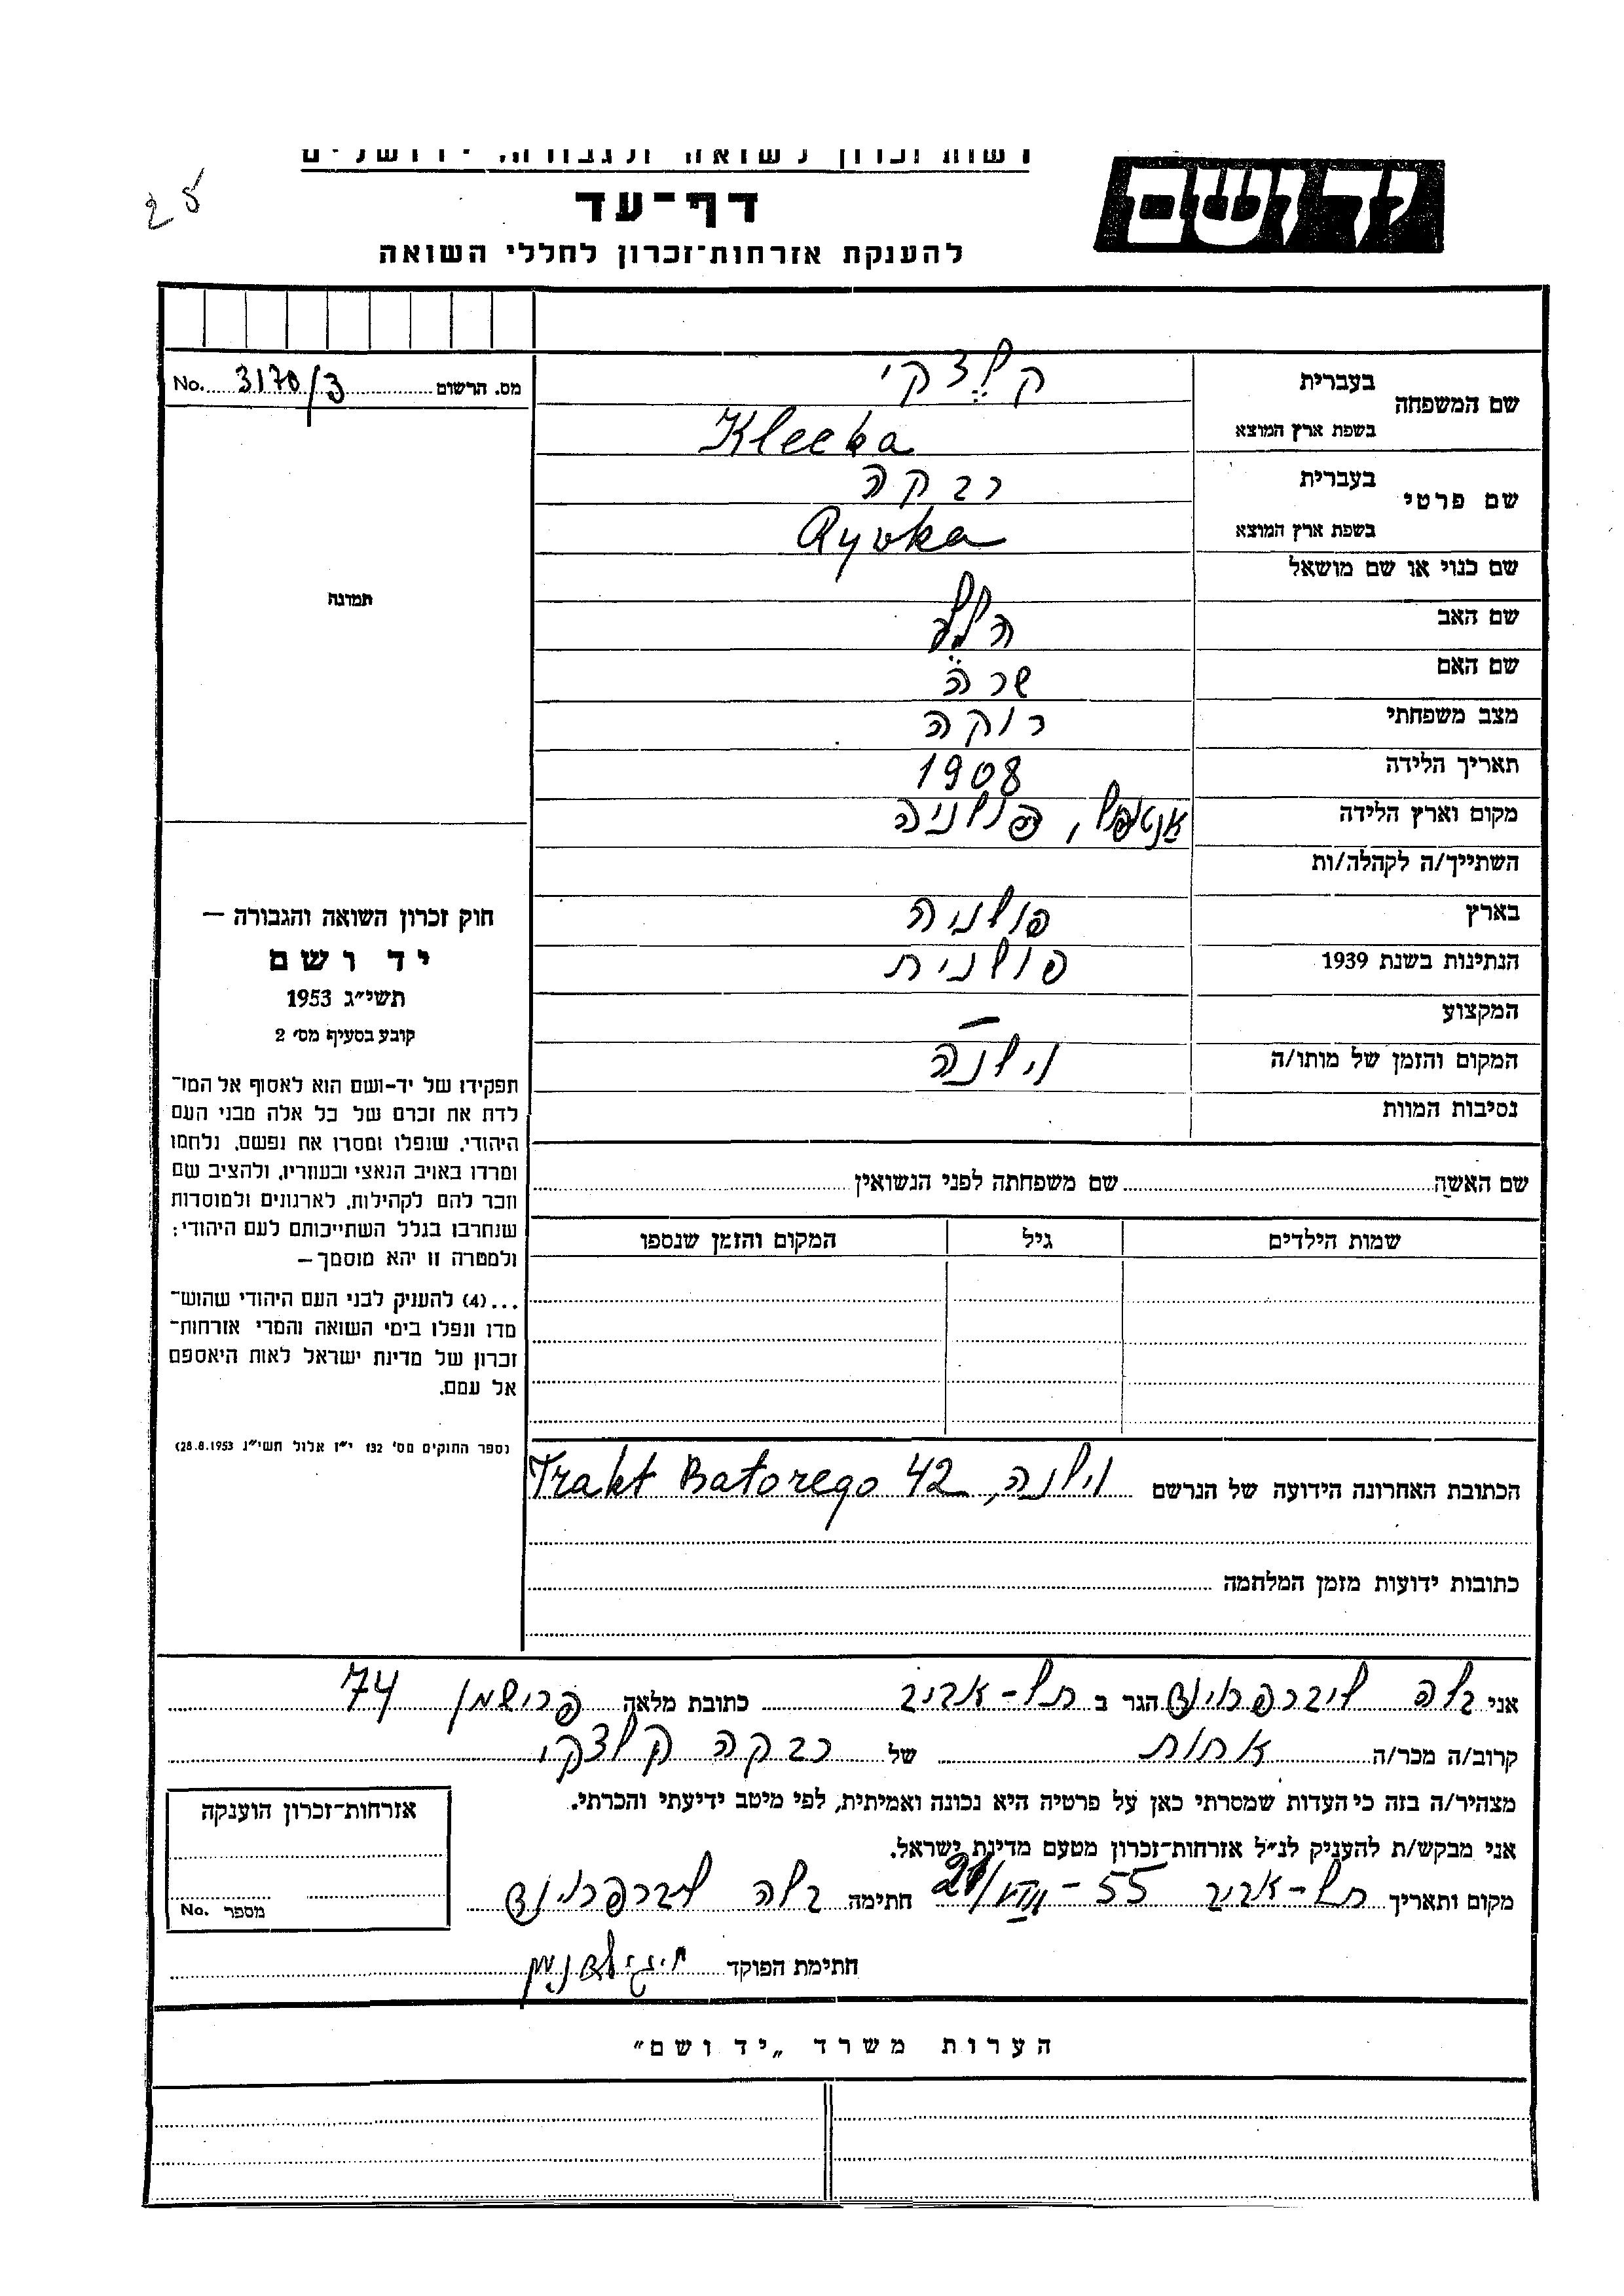 25
רשות זכרון לשואה ולגבורה, ירושלים
יד ושם
דף־עד
להענקת אזרחות־זכרון לחללי השואה
מס. הרשום 3170/ב No.
שם המשפחה בעברית קלצקי
בשפת ארץ המוצא Klecka
שם פרטי בעברית רבקה
בשפת ארץ המוצא Ryvka
שם כנוי או שם מושאל
שם האב הלל
שם האם שרה
מצב משפחתי רוקה
תאריך הלידה 1908
מקום וארץ הלידה אנטופול, פולניה
השתייך/ה לקהלה/ות
בארץ פולניה
הנתינות בשנת 1939 פולנית
המקצוע —
המקום והזמן של מותו/ה וילנה
נסיבות המוות
תמונה
חוק זכרון השואה והגבורה —
יד ושם
תשי״ג 1953
קובע בסעיף מס׳ 2
תפקידו של יד-ושם הוא לאסוף אל המו־
לדת את זכרם של כל אלה מבני העם
היהודי, שנפלו ומסרו את נפשם, נלחמו
ומרדו באויב הנאצי ובעוזריו, ולהציב שם
וזכר להם לקהילות, לארגונים ולמוסדות
שנחרבו בגלל השתייכותם לעם היהודי;
ולמטרה זו יהא מוסמך —
...(4) להעניק לבני העם היהודי שהוש־
מדו ונפלו בימי השואה והמרי אזרחות־
זכרון של מדינת ישראל לאות היאספם
אל עמם.
(ספר החוקים מס׳ 132 י״ז אלול תשי״ג 28.8.1953)
שם האשה שם משפחתה לפני הנשואין
שמות הילדים גיל המקום והזמן שנספו
הכתובת האחרונה הידועה של הנרשם וילנה, Trakt Batorego 42
כתובות ידועות מזמן המלחמה
אני בלה ליברפרוינד הגר ב תל-אביב כתובת מלאה פרישמן 74
קרוב/ה מכר/ה אחות של רבקה קלצקי
מצהיר/ה בזה כי העדות שמסרתי כאן על פרטיה היא נכונה ואמיתית, לפי מיטב ידיעתי והכרתי.
אני מבקש/ת להעניק לנ״ל אזרחות־זכרון מטעם מדינת ישראל.
מקום ותאריך תל-אביב 55 - חתימה בלה ליברפרוינד
חתימת הפוקד
אזרחות־זכרון הוענקה
מספר No.
הערות משרד „יד ושם״